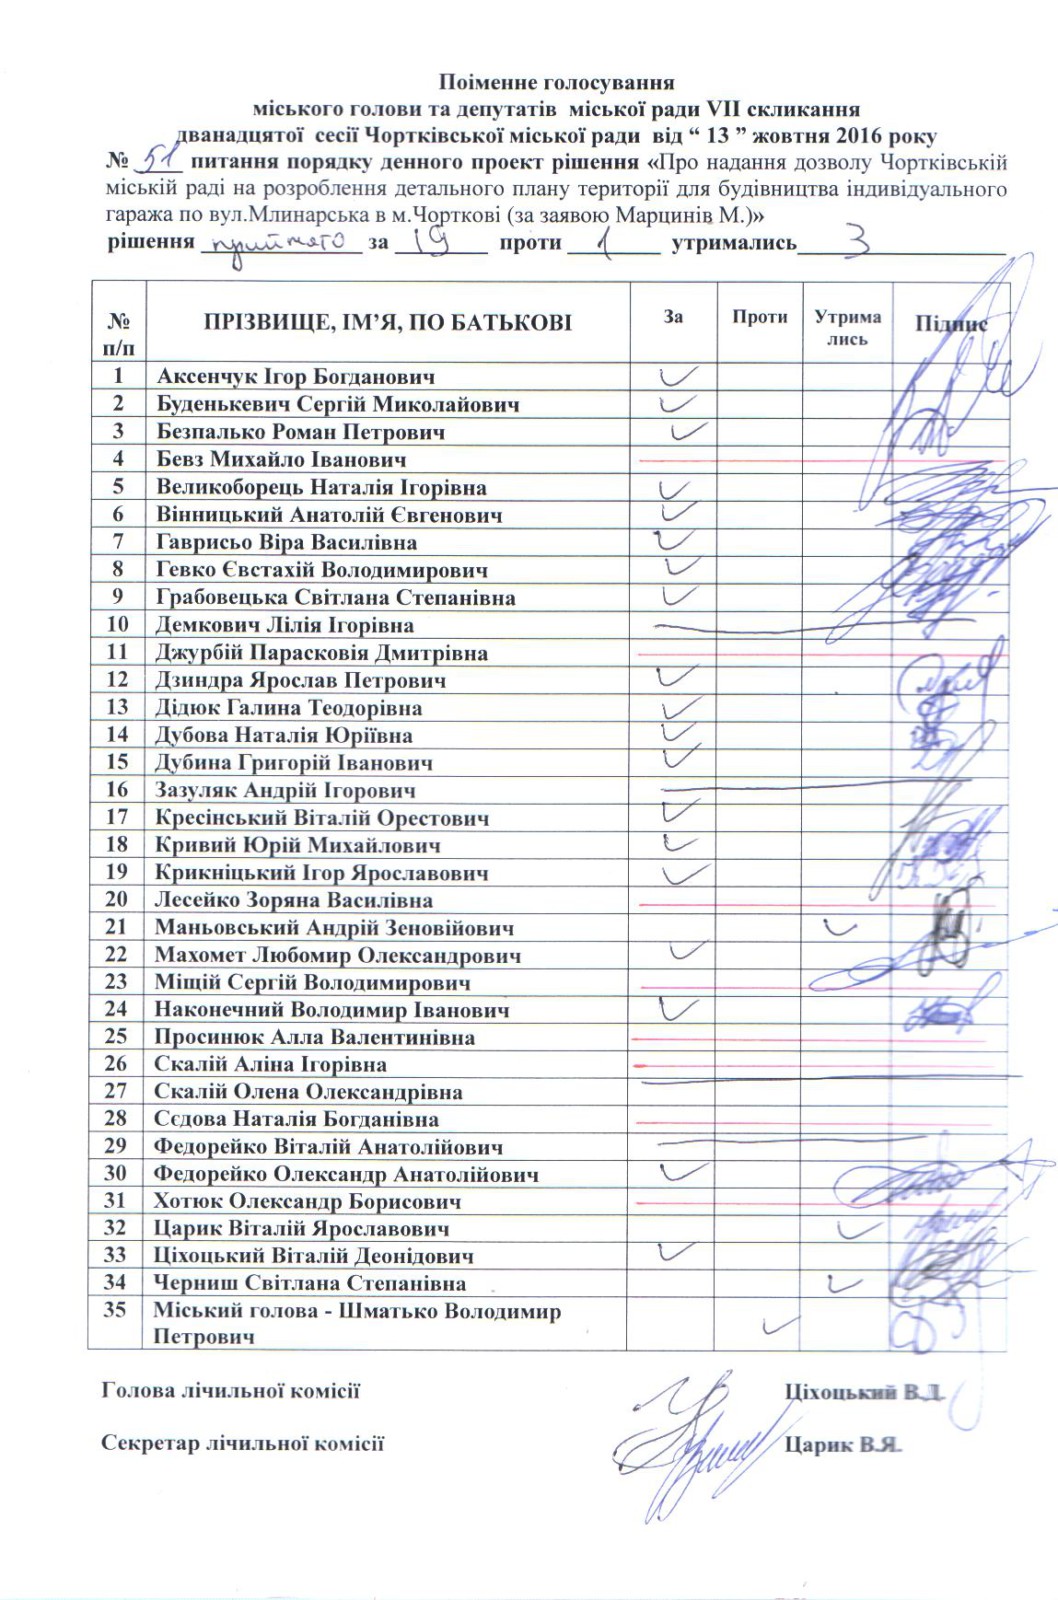 Поіменне голосування
міського голови та депутатів міської ради VII скликання
дванадцятої сесії Чортківської міської ради від “ 13 ” жовтня 2016 року
№ 51 питання порядку денного проект рішення «Про надання дозволу Чортківській
міській раді на розроблення детального плану території для будівництва індивідуального
гаража по вул.Млинарська в м.Чорткові (за заявою Марцинів М.)»
рішення прийнято за 19 проти 1 утримались 3
№ п/п ПРІЗВИЩЕ, ІМ’Я, ПО БАТЬКОВІ За Проти Утрима лись Підпис
1 Аксенчук Ігор Богданович
2 Буденькевич Сергій Миколайович
3 Безпалько Роман Петрович
4 Бевз Михайло Іванович
5 Великоборець Наталія Ігорівна
6 Вінницький Анатолій Євгенович
7 Гаврисьо Віра Василівна
8 Гевко Євстахій Володимирович
9 Грабовецька Світлана Степанівна
10 Демкович Лілія Ігорівна
11 Джурбій Парасковія Дмитрівна
12 Дзиндра Ярослав Петрович
13 Дідюк Галина Теодорівна
14 Дубова Наталія Юріївна
15 Дубина Григорій Іванович
16 Зазуляк Андрій Ігорович
17 Кресінський Віталій Орестович
18 Кривий Юрій Михайлович
19 Крикніцький Ігор Ярославович
20 Лесейко Зоряна Василівна
21 Маньовський Андрій Зеновійович
22 Махомет Любомир Олександрович
23 Міщій Сергій Володимирович
24 Наконечний Володимир Іванович
25 Просинюк Алла Валентинівна
26 Скалій Аліна Ігорівна
27 Скалій Олена Олександрівна
28 Сєдова Наталія Богданівна
29 Федорейко Віталій Анатолійович
30 Федорейко Олександр Анатолійович
31 Хотюк Олександр Борисович
32 Царик Віталій Ярославович
33 Ціхоцький Віталій Деонідович
34 Черниш Світлана Степанівна
35 Міський голова - Шматько Володимир
Петрович
Голова лічильної комісії Ціхоцький В.Д.
Секретар лічильної комісії Царик В.Я.